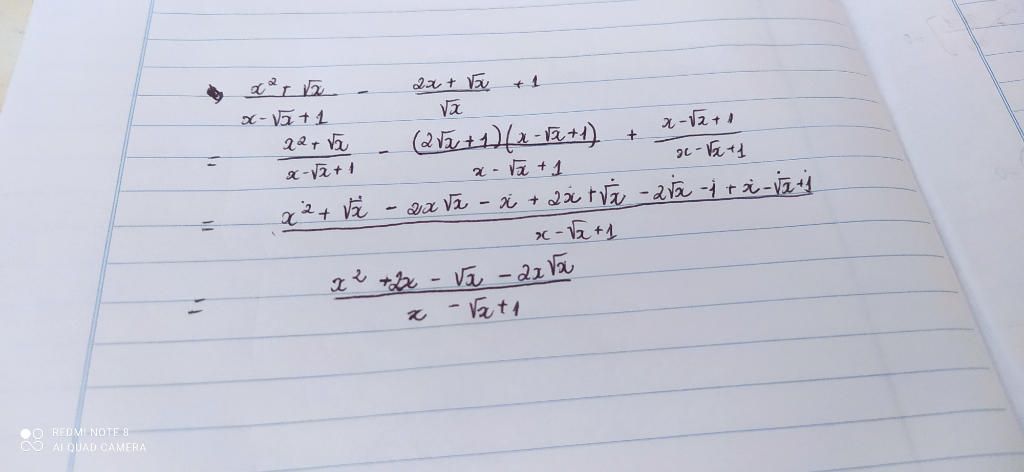 x² + √x / x - √x + 1 - 2x + √x / √x + 1
= x² + √x / x - √x + 1 - (2√x + 1)(x - √x + 1) / x - √x + 1 + x - √x + 1 / x - √x + 1
= x² + √x - 2x√x - x + 2x + √x - 2√x - 1 + x - √x + 1 / x - √x + 1
= x² + 2x - √x - 2x√x / x - √x + 1
REDMI NOTE 8
AI QUAD CAMERA